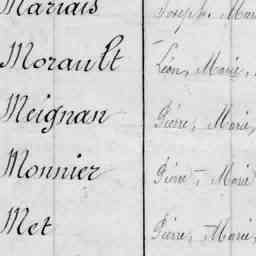 Mariais Joseph, Mari
Morault Léon, Marie,
Meignan Pierre, Marie,
Monnier Pierre, Marie
Met Pierre, Marie,